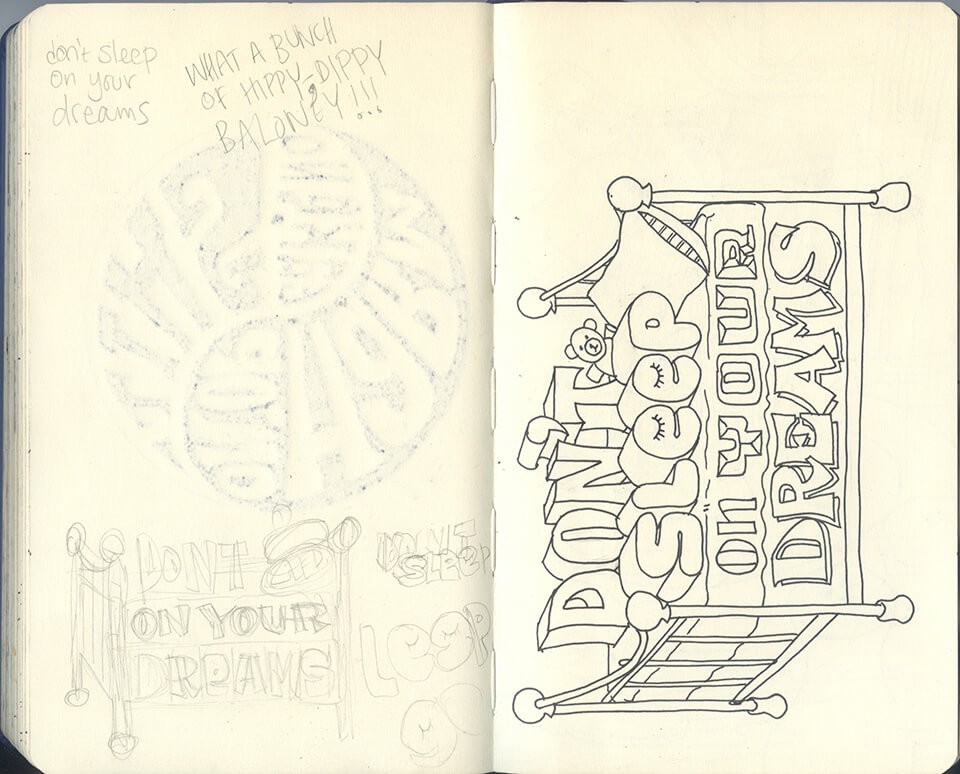 don't sleep
on your
dreams
WHAT A BUNCH
OF HIPPY-DIPPY
BALONEY!!!
DON'T
ON YOUR
DREAMS
DON'T
SLEEP
DON'T
SLEEP
on YOUR
DREAMS